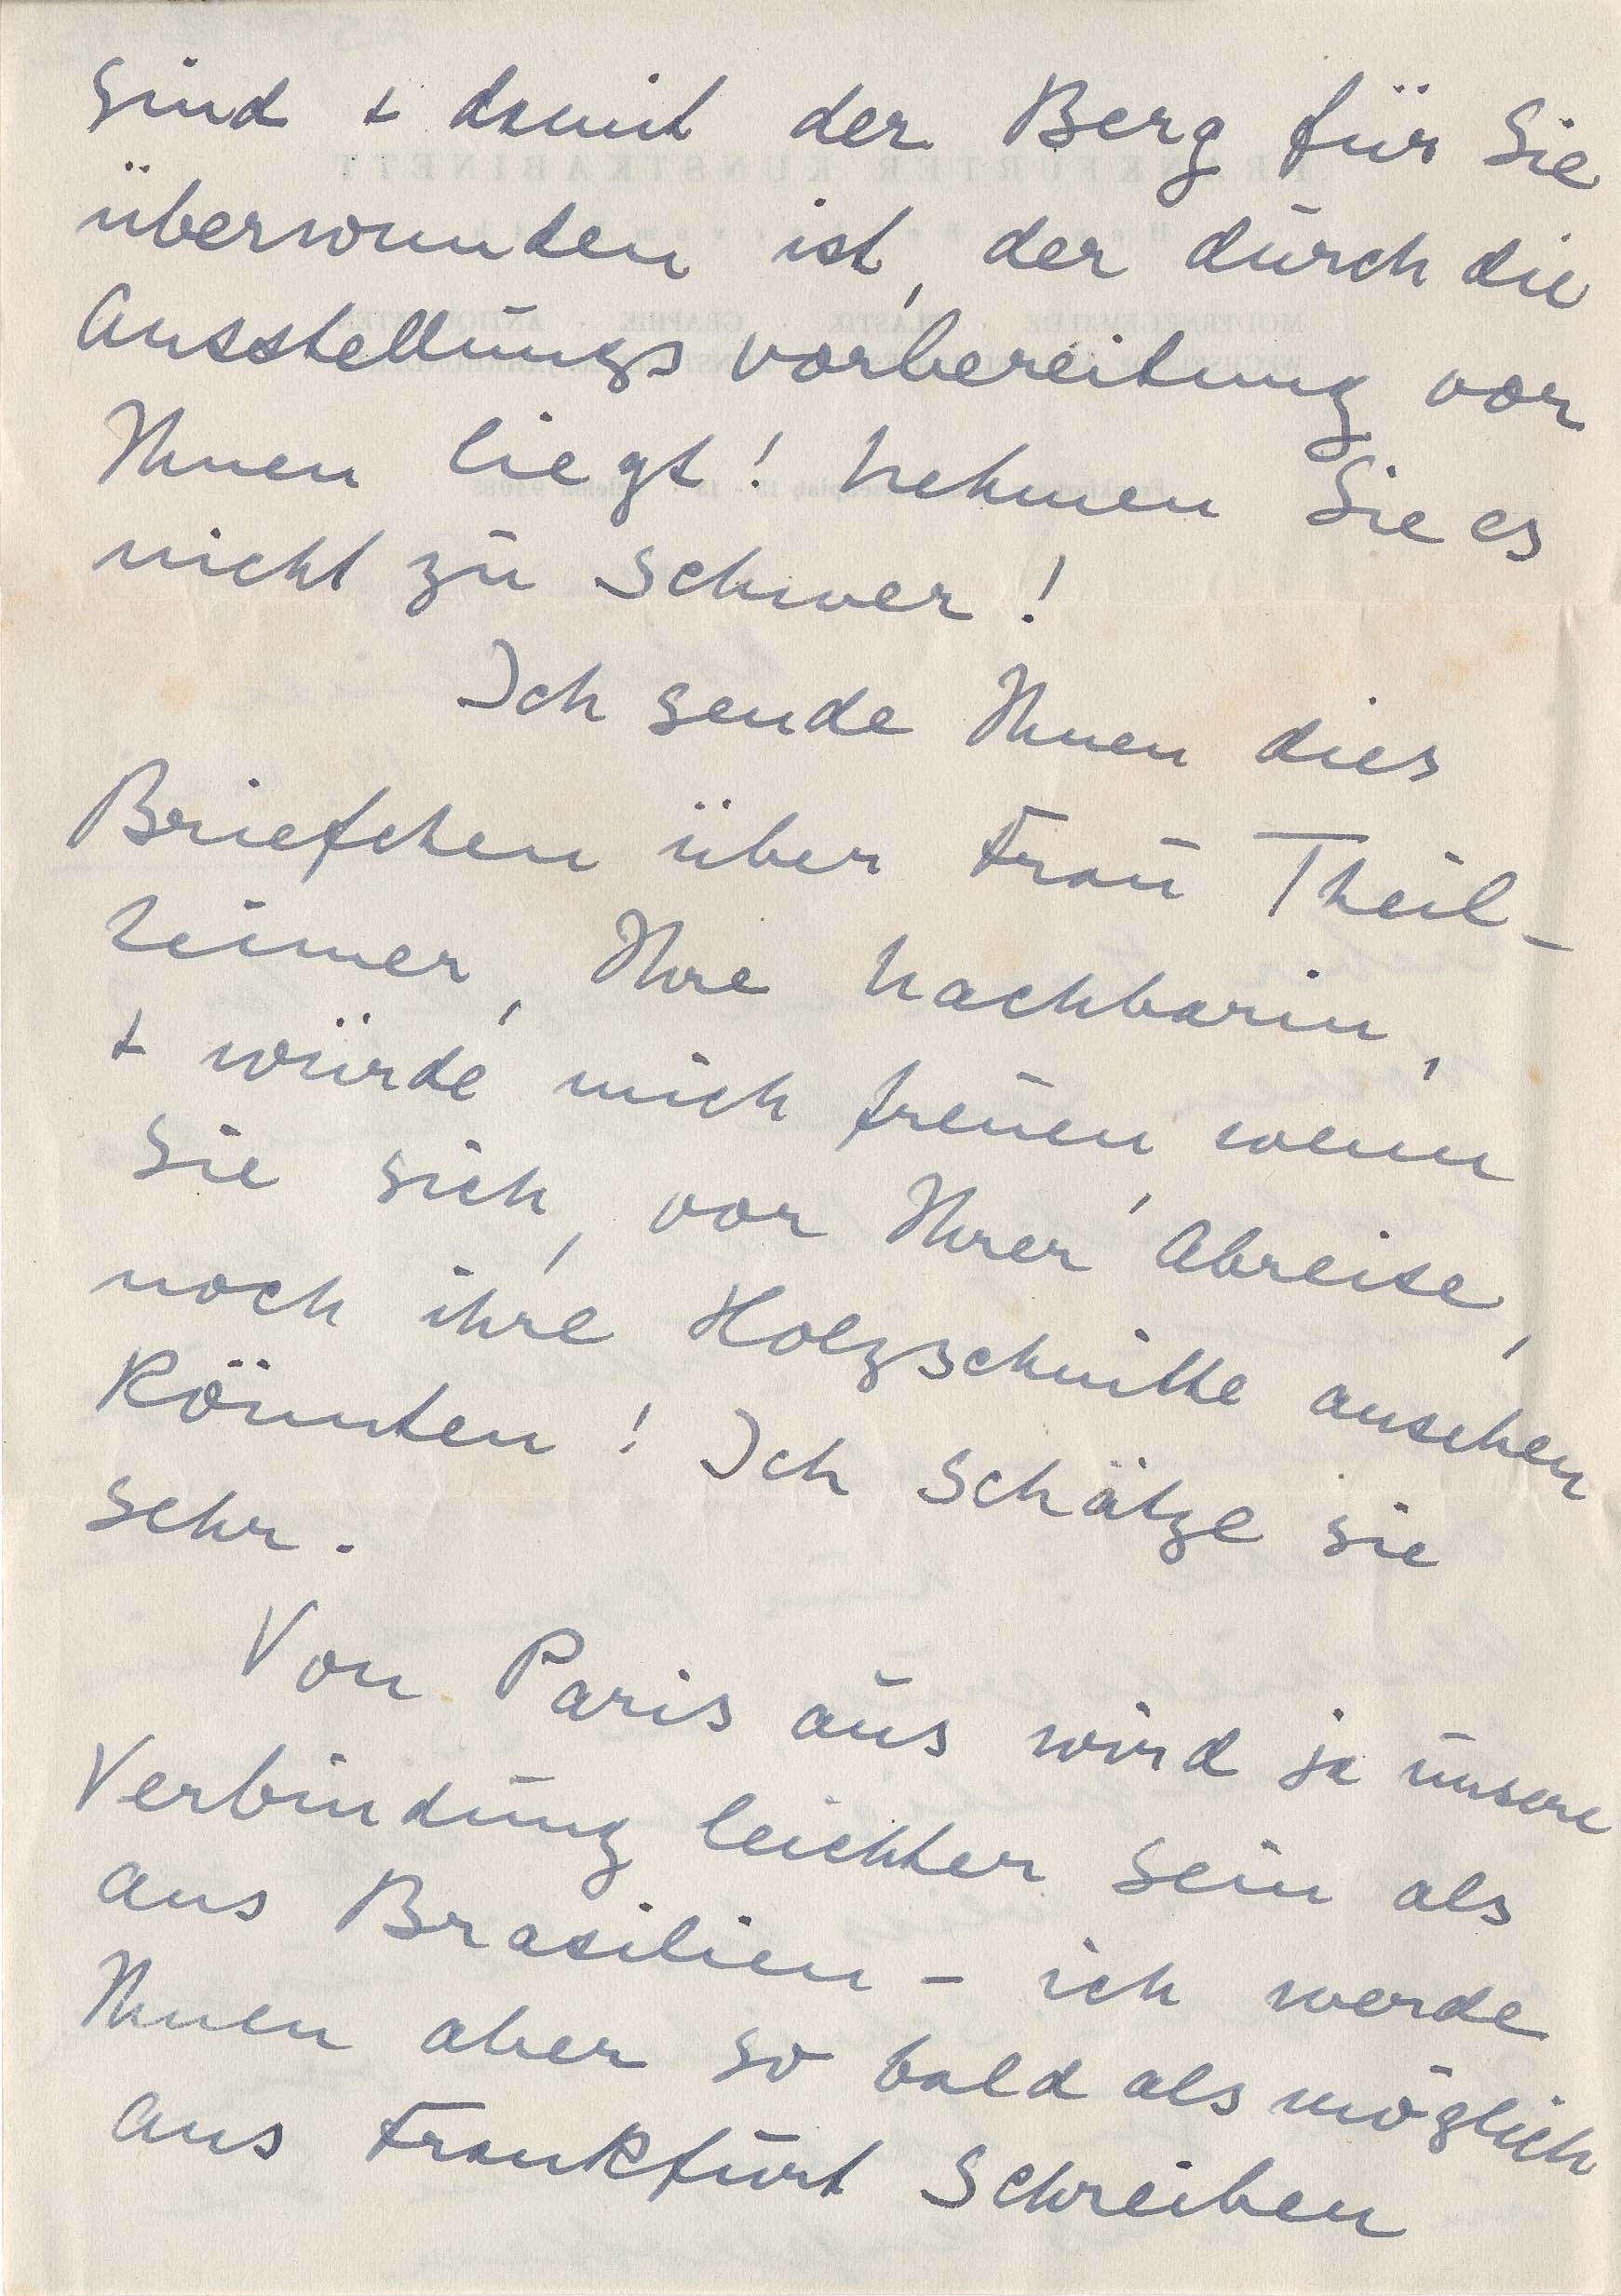 sind + damit der Berg für Sie
überwunden ist, der durch die
Ausstellungsvorbereitung vor
Ihnen liegt! Nehmen Sie es
nicht zu schwer!
Ich sende Ihnen dies
Briefchen über Frau Theil-
heimer, Ihre Nachbarin,
+ würde mich freuen, wenn
Sie sich, vor Ihrer Abreise,
noch ihre Holzschnitte ansehen
könnten! Ich schätze sie
sehr.
Von Paris aus wird ja unsere
Verbindung leichter sein als
aus Brasilien – ich werde
Ihnen aber so bald als möglich
aus Frankfurt schreiben